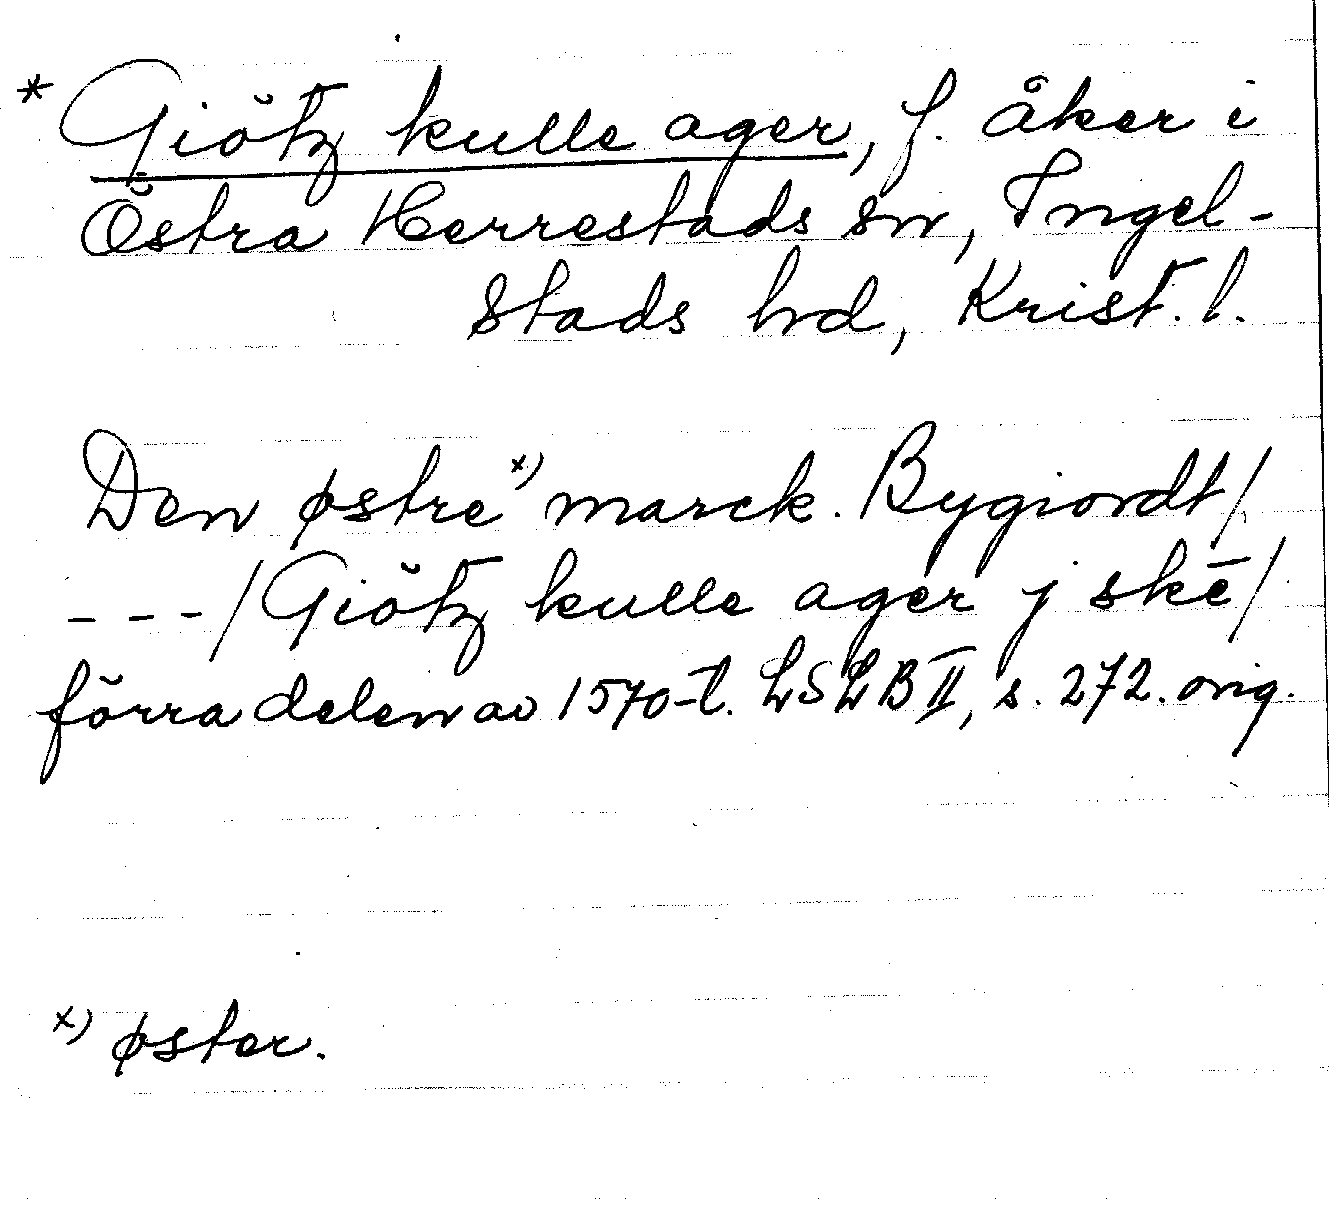 * Giötz kulle ager, f. åker i
Östra Herrestads sn, Ingel-
stads hd, Krist. l.
Den østre x) marck. Bygiordt/
---/Giötz kulle ager j skē/
förra delen av 1570-t. LSLB II, s. 272. orig.
x) øster.